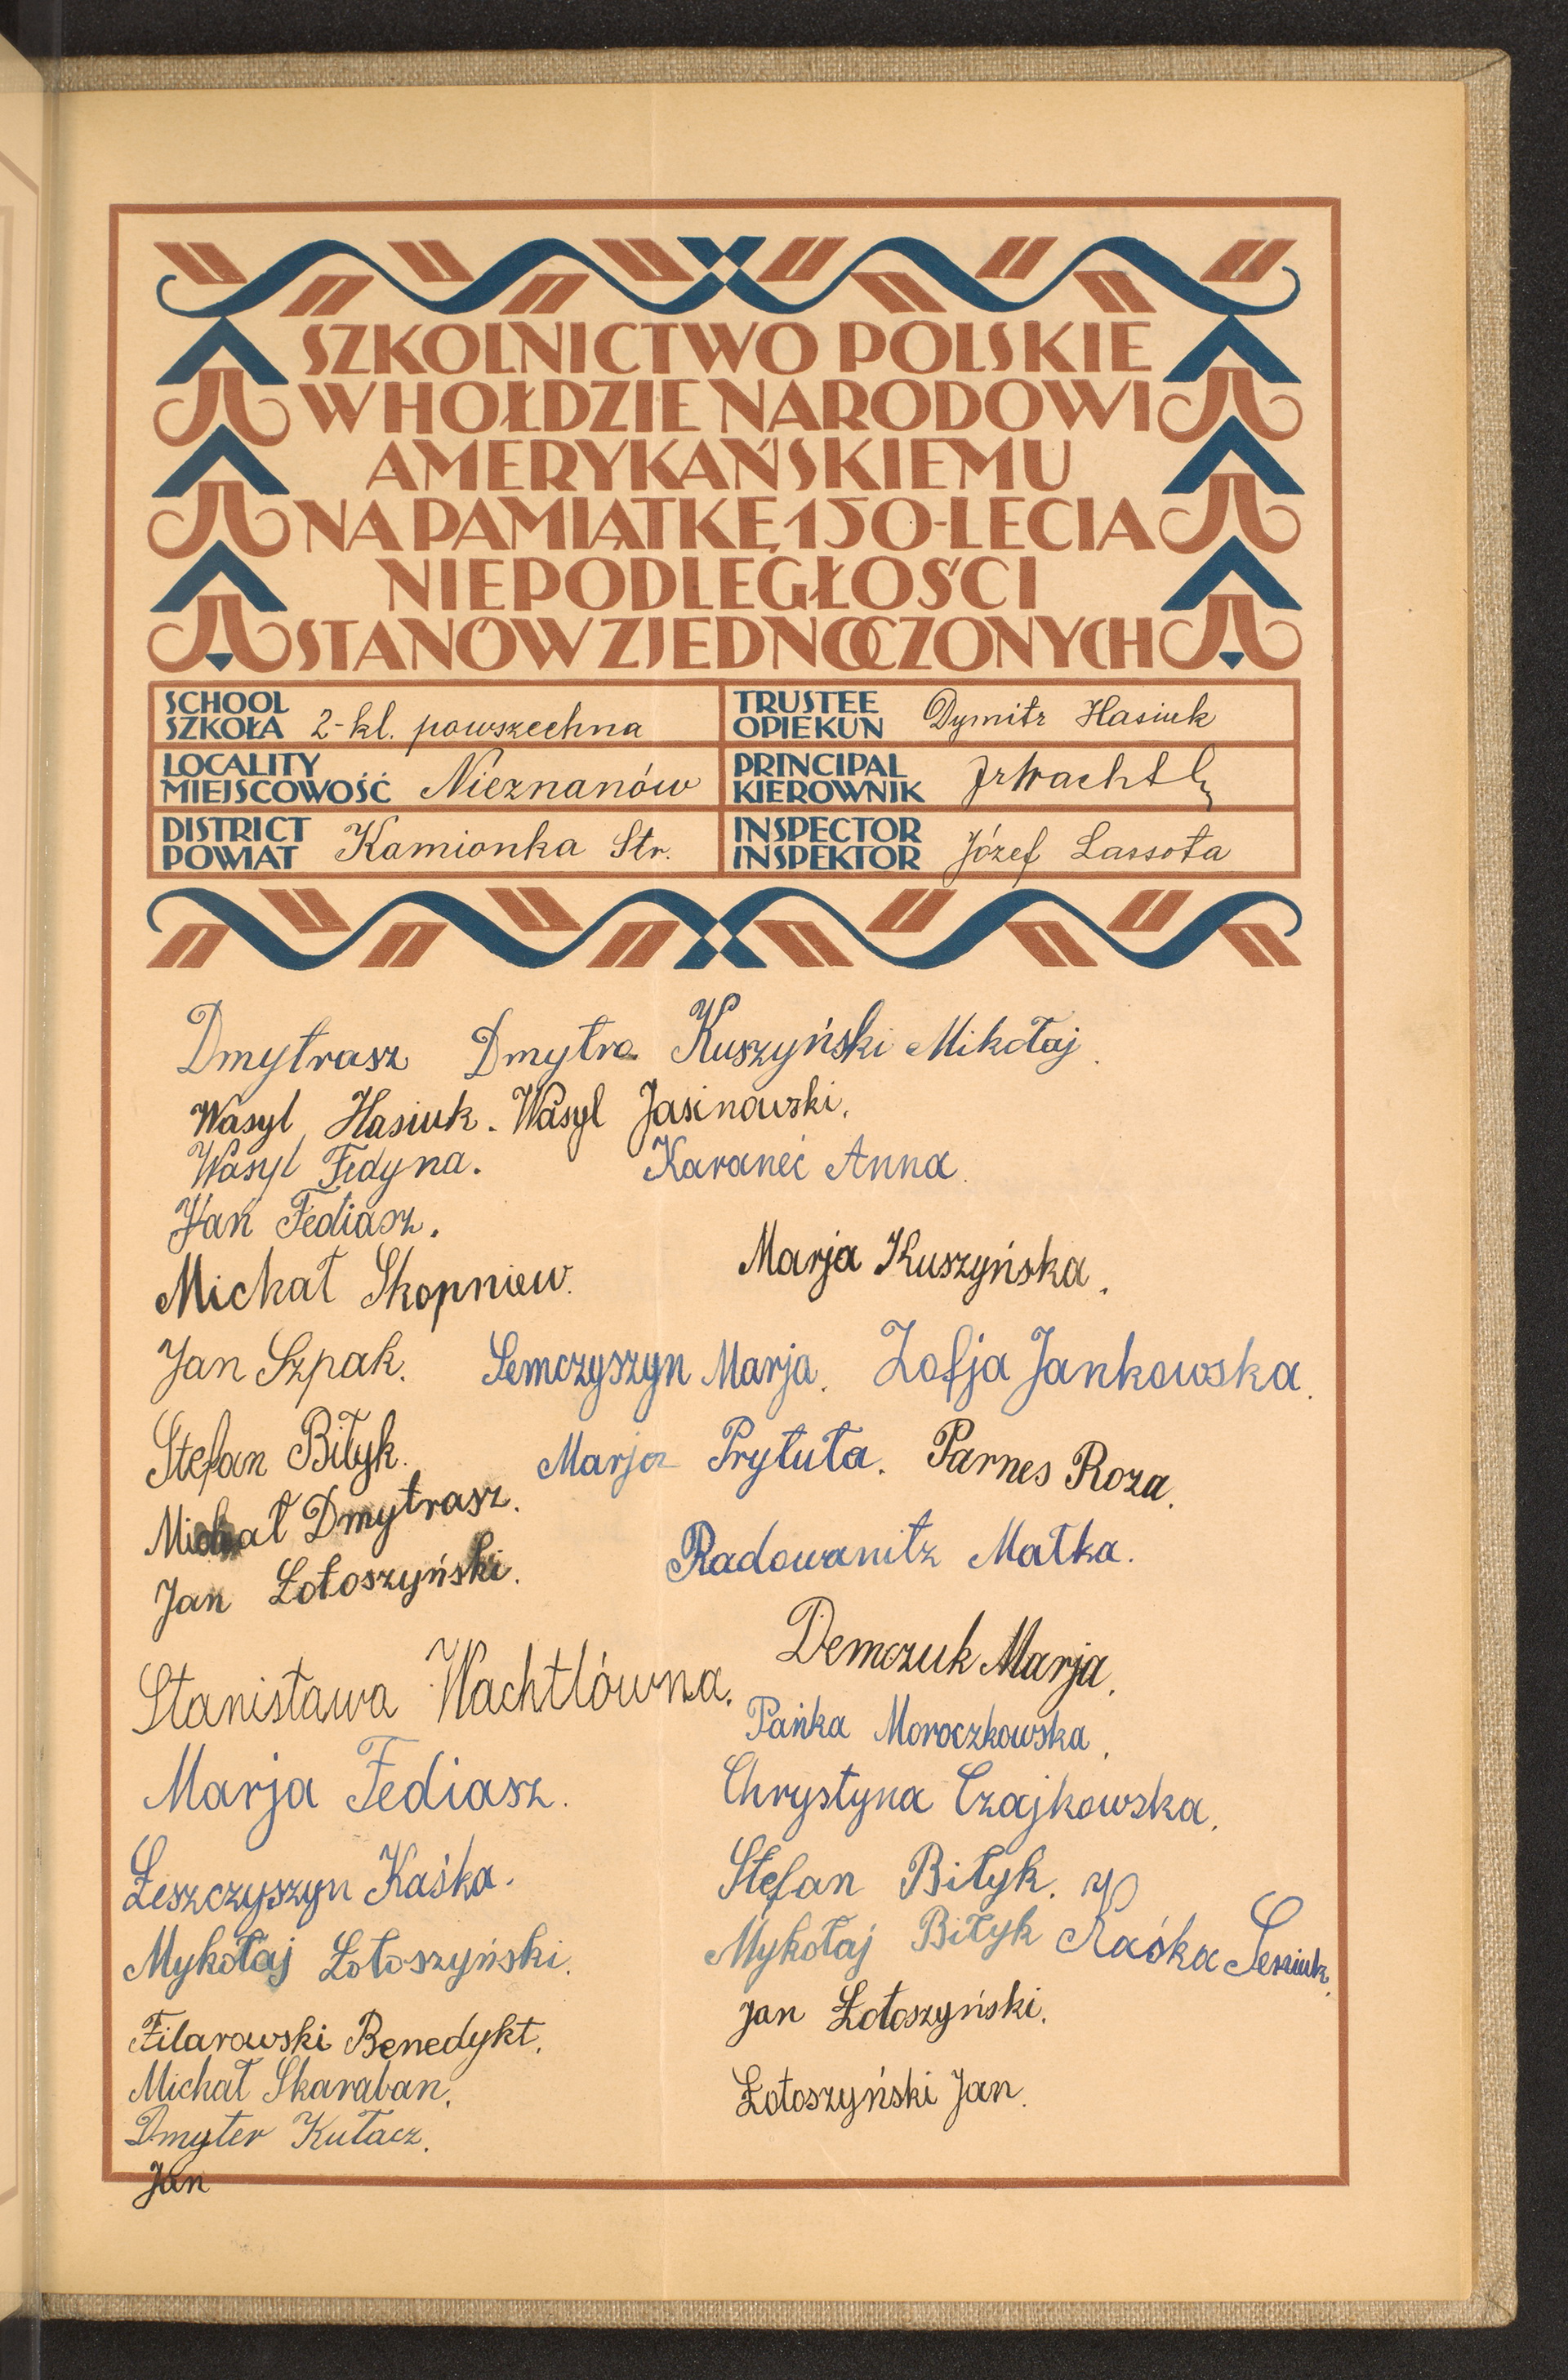 SZKOLNICTWO POLSKIE
W HOŁDZIE NARODOWI
AMERYKAŃSKIEMU
NA PAMIĄTKĘ 150-LECIA
NIEPODLEGŁOŚCI
STANÓW ZJEDNOCZONYCH
SCHOOL
SZKOŁA 2-kl. powszechna
TRUSTEE
OPIEKUN Dymitr Hasiuk
LOCALITY
MIEJSCOWOŚĆ Nieznanów
PRINCIPAL
KIEROWNIK JrWachtl
DISTRICT
POWIAT Kamionka Str.
INSPECTOR
INSPEKTOR Józef Lassota
Dmytrasz Dmytro Kuszyński Mikołaj.
Wasyl Hasiuk. Wasyl Jasinowski.
Wasyl Fedyna. Karaneć Anna.
Iwan Fediasz.
Michał Skopniew. Marja Kuszyńska.
Jan Szpak. Semczyszyn Marja. Zofja Jankowska.
Stefan Biłyk. Marja Prytuła. Parnes Roza.
Michał Dmytrasz.
Jan Łotoszyński. Radowanitz Małka.
Demczuk Marja.
Stanisława Wachtlówna.
Pańka Moroczkowska.
Marja Fediasz. Chrystyna Czajkowska.
Łeszczyszyn Kaśka. Stefan Biłyk.
Mykołaj Łotoszyński. Mykołaj Biłyk Kaśka
Filarowski Benedykt. Jan Łotoszyński.
Michał Skaraban. Łotoszyński Jan.
Dmyter Kułacz.
Jan